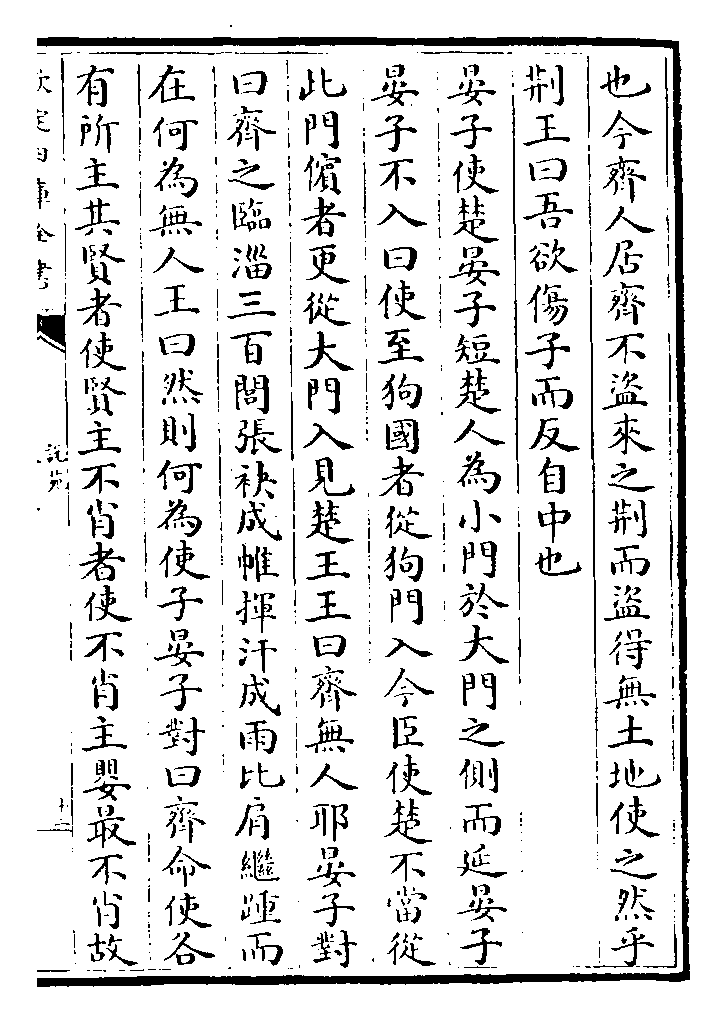 也今齊人居齊不盜來之荆而盜得無土地使之然乎
荆王曰吾欲傷子而反自中也
晏子使楚晏子短楚人為小門於大門之側而延晏子
晏子不入曰使至狗國者從狗門入今臣使楚不當從
此門儐者更從大門入見楚王王曰齊無人耶晏子對
曰齊之臨淄三百閭張袂成帷揮汗成雨比肩繼踵而
在何為無人王曰然則何為使子晏子對曰齊命使各
有所主其賢者使賢主不肖者使不肖主嬰最不肖故
欽定四庫全書
說苑
十二